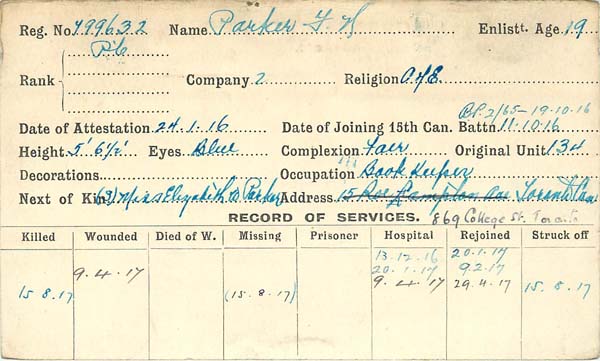 Reg. No. 799632 Name Parker F. W Enlistt. Age 19
Pte
Rank Company 2 Religion C of E
Bl. 2/65-19-10-16
Date of Attestation 24.1.16 Date of Joining 15th Can. Battn 11.10.16
Height 5' 6½" Eyes Blue Complexion Fair Original Unit 134
Decorations Occupation Book Keeper
Next of Kin (S) Miss Elizabeth Parker Address 15 Hampton Ave Toronto Can
RECORD OF SERVICES. 869 College St. Toronto
Killed Wounded Died of W. Missing Prisoner Hospital Rejoined Struck off
13.12.16 20.1.17
9.4.17 20.1.17 9.2.17
15.8.17 (15.8.17) 9.4.17 29.4.17 15.8.17